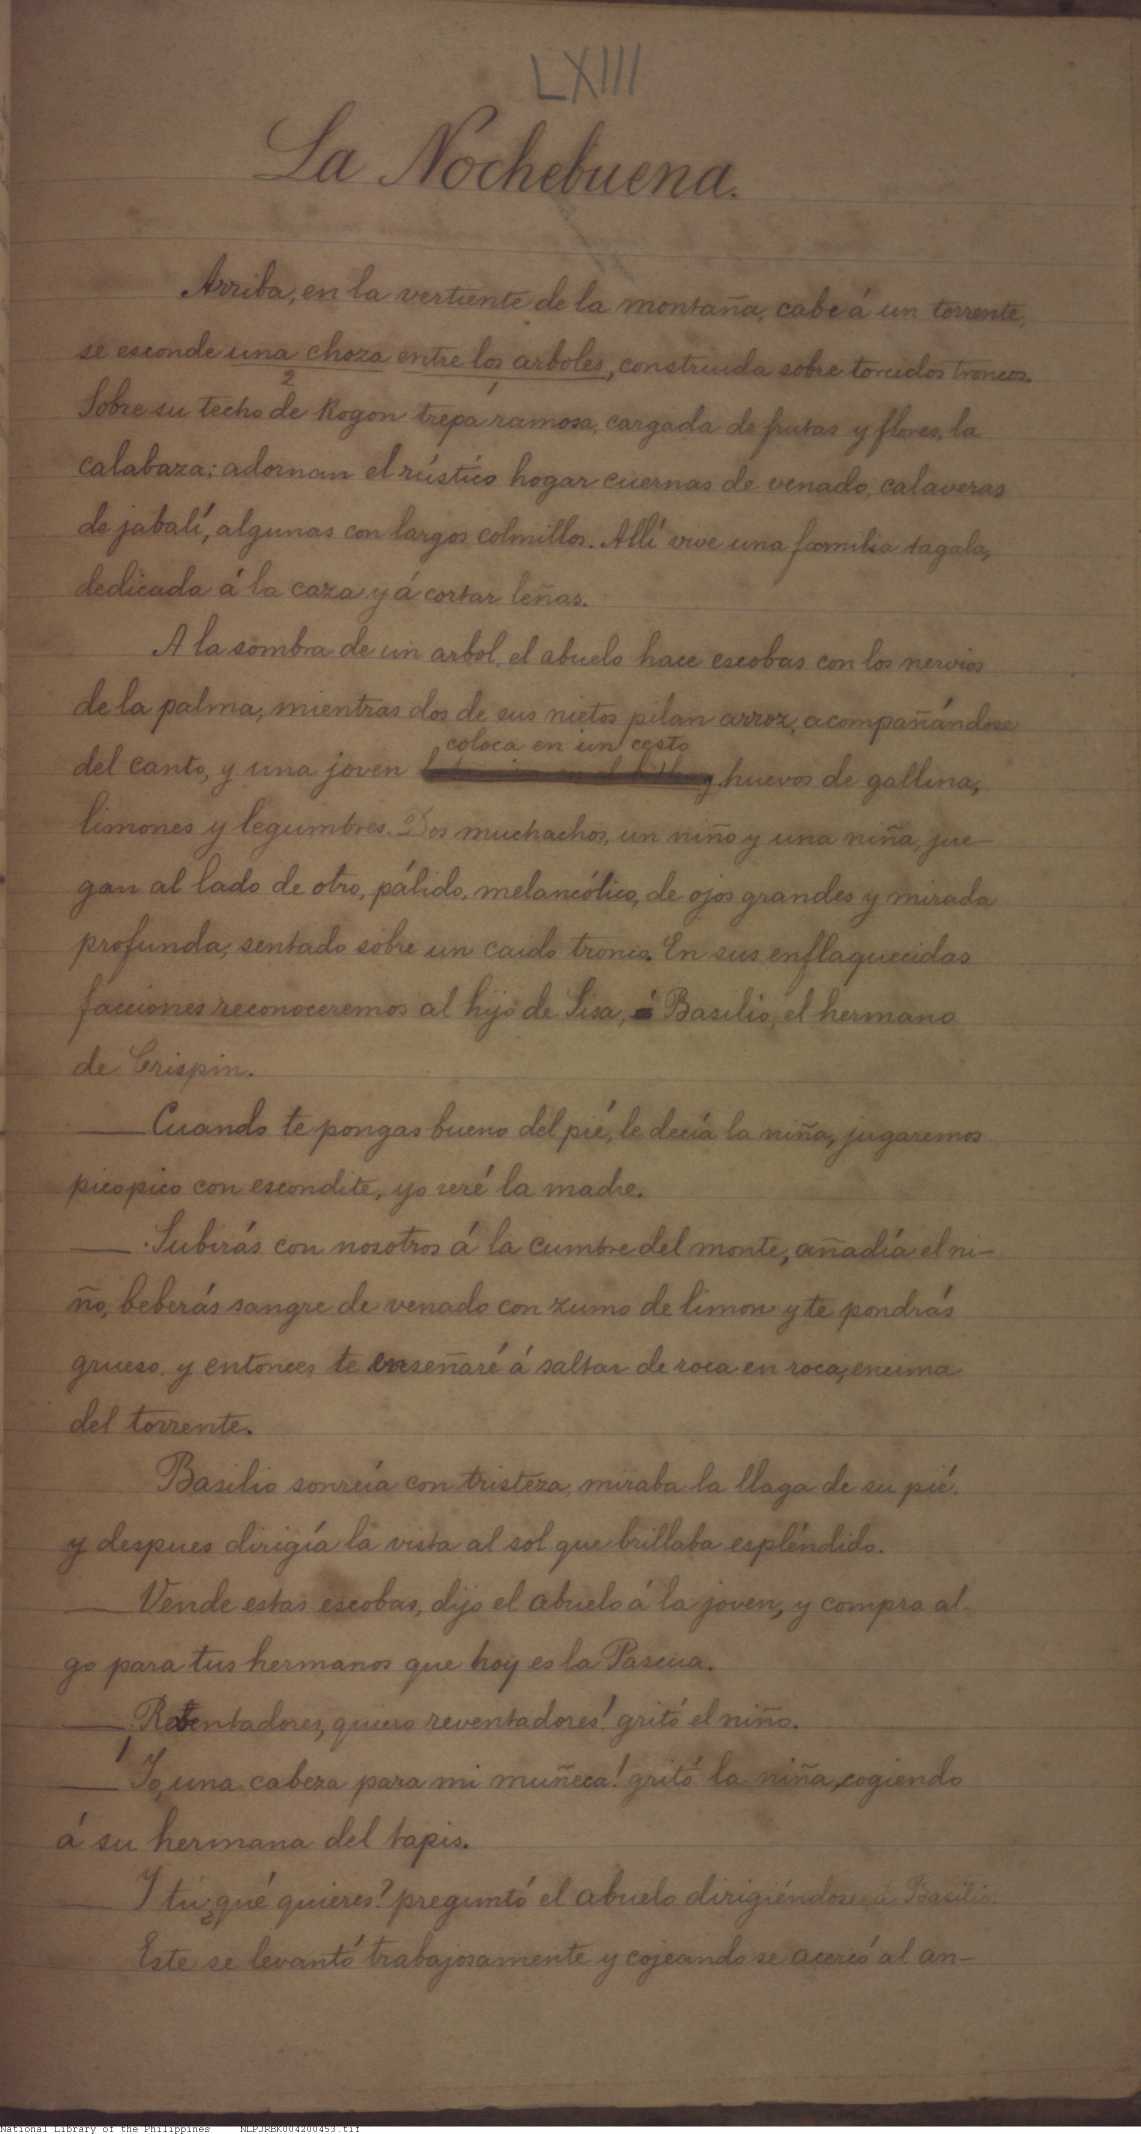 LXIII
La Nochebuena.
Arriba, en la vertiente de la montaña, cabe á un torrente,
se esconde una choza entre los arboles, construida sobre torcidos troncos.
2 1
Sobre su techo de Kogon trepa ramosa, cargada de frutas y flores, la
calabaza; adornan el rústico hogar cuernas de venado, calaveras
de jabalí, algunas con largos colmillos. Allí vive una familia tagala,
dedicada á la caza y á cortar leñas.
A la sombra de un arbol, el abuelo hace escobas con los nervios
de la palma, mientras dos de sus nietos pilan arroz, acompañándose
coloca en un cesto
del canto, y una joven huevos de gallina,
limones y legumbres. Dos muchachos, un niño y una niña, jue-
gan al lado de otro, pálido, melancólico, de ojos grandes y mirada
profunda, sentado sobre un caido tronco. En sus enflaquecidas
facciones reconoceremos al hijo de Sisa, á Basilio, el hermano
de Crispin.
—Cuando te pongas bueno del pié, le decía la niña, jugaremos
pico pico con escondite, yo seré la madre.
—Subirás con nosotros á la cumbre del monte, añadía el ni-
ño, beberás sangre de venado con zumo de limon y te pondrás
grueso, y entonces te enseñaré á saltar de roca en roca, encima
del torrente.
Basilio sonreía con tristeza, miraba la llaga de su pié,
y despues dirigía la vista al sol que brillaba espléndido.
—Vende estas escobas, dijo el abuelo á la joven, y compra al-
go para tus hermanos que hoy es la Pascua.
—¡Reventadores, quiero reventadores! gritó el niño.
—¡Yo, una cabeza para mi muñeca! gritó la niña, cogiendo
á su hermana del tapis.
—Y tú ¿qué quieres? preguntó el abuelo dirigiéndose á Basilio.
Este se levantó trabajosamente y cojeando se acercó al an-
National Library of the Philippines NLPJRBK004200453.tif